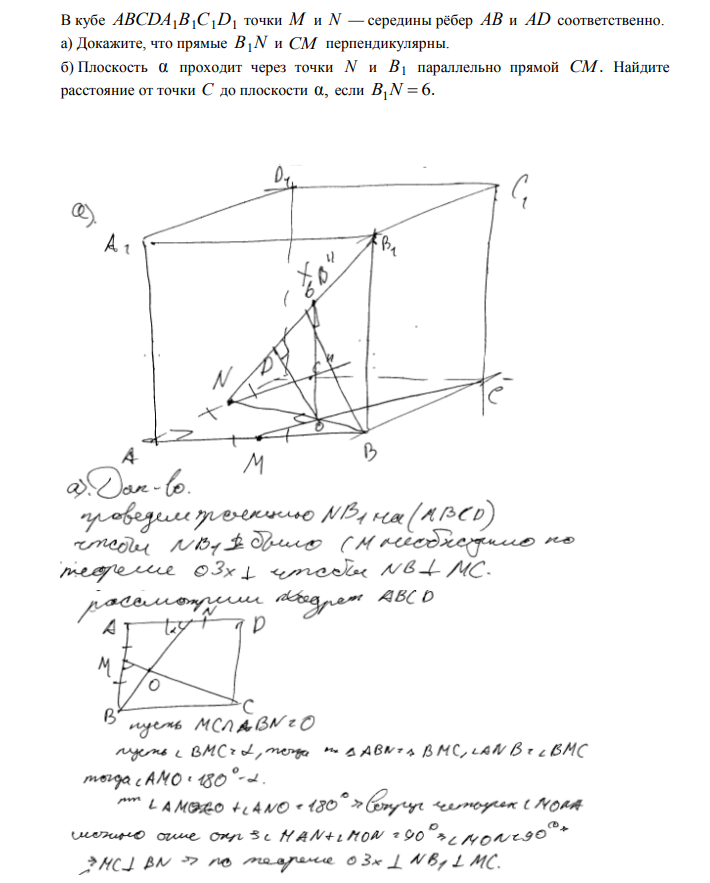 В кубе ABCDA₁B₁C₁D₁ точки M и N — середины рёбер AB и AD соответственно.
а) Докажите, что прямые B₁N и CM перпендикулярны.
б) Плоскость α проходит через точки N и B₁ параллельно прямой CM. Найдите
расстояние от точки C до плоскости α, если B₁N = 6.
D₁
C₁
а).
A₁
B₁
B"
6
N
D
C"
C
O
A
M
B
а). Док-во.
проведем проекцию NB₁ на (ABCD)
чтобы NB₁ ⊥ было CM необходимо по
теореме о 3х ⊥ чтобы NB ⊥ MC.
рассмотрим квадрат ABCD
N
A
D
M
O
B
C
пусть MC∩BN=O
пусть ∠BMC=α, тогда ∆ABN=∆BMC, ∠ANB=∠BMC
тогда ∠AMO=180°-α.
∠AMO+∠ANO=180° => вокруг четырех MONA
можно опис окр => ∠MAN+∠MON=90° => ∠MON=90°
=> MC⊥BN => по теореме о 3х ⊥ NB₁⊥MC.